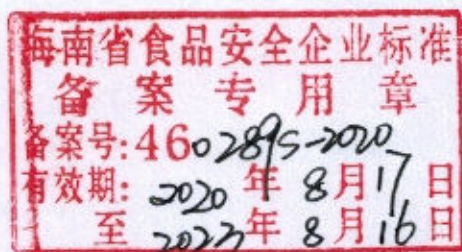 海南省食品安全企业标准
备案专用章
备案号:460289S-2020
有效期:2020年8月17日
至2023年8月16日